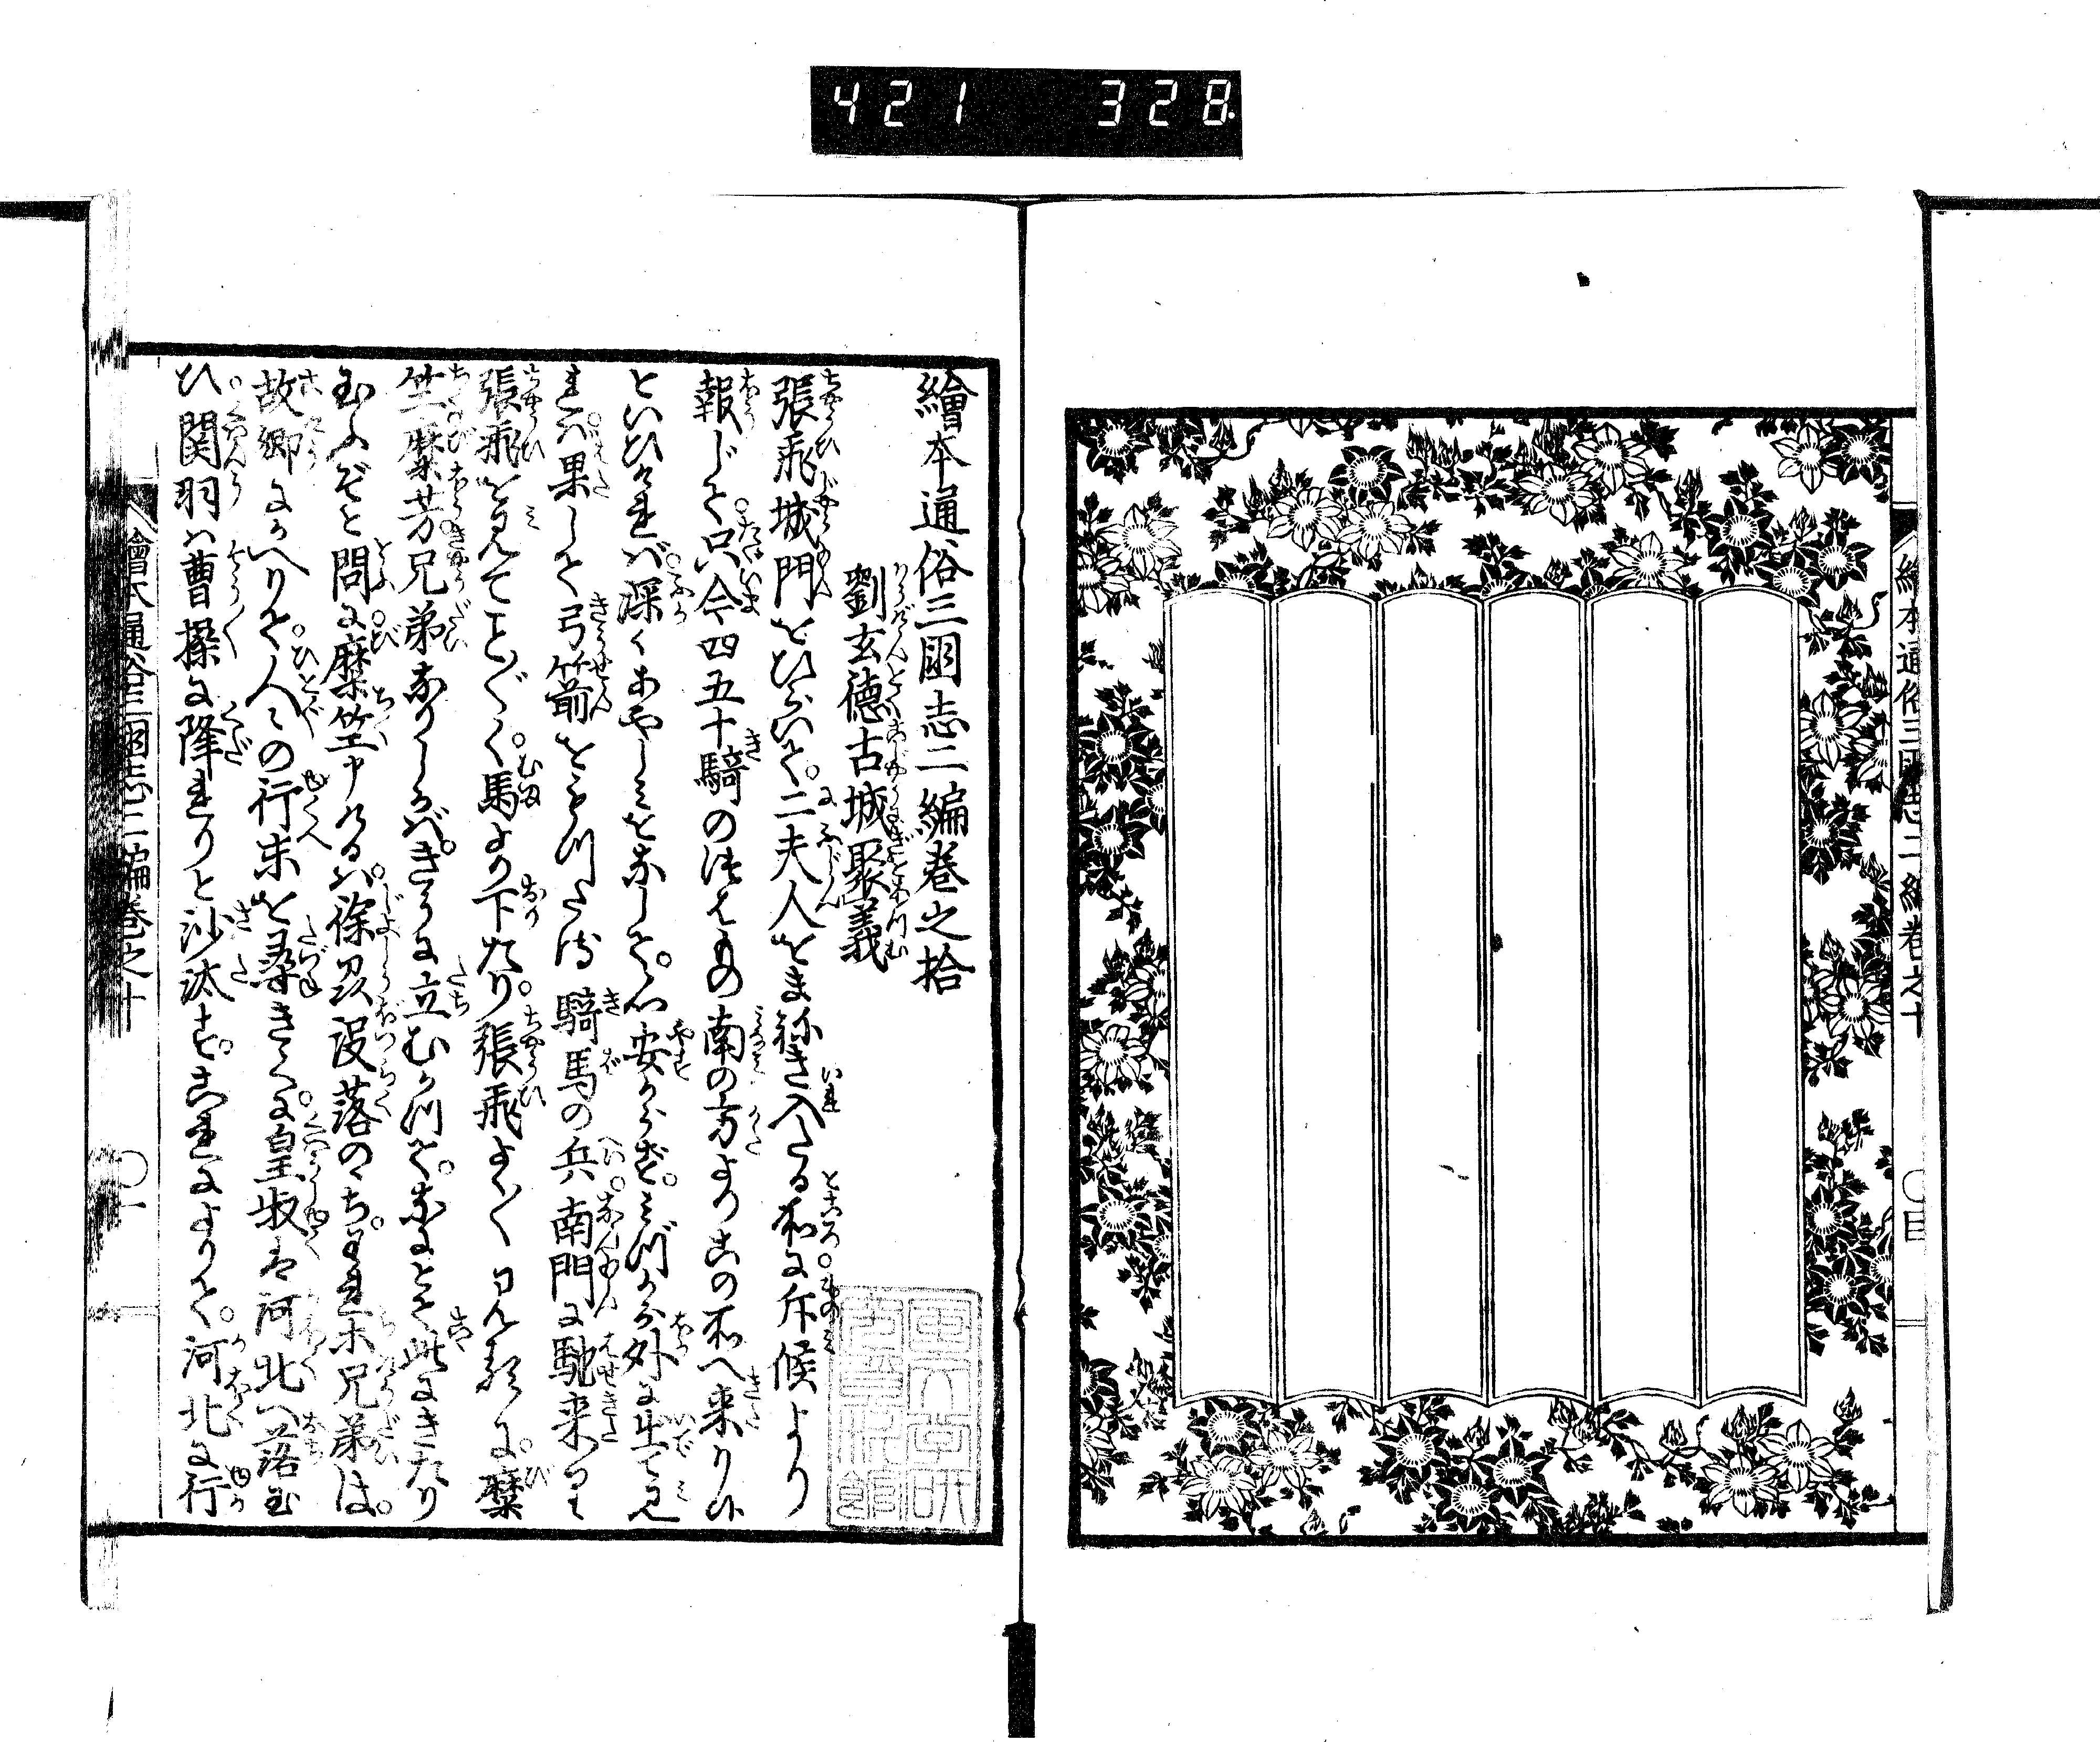 421 328
繪本通俗三國志二編巻之十
〇目
繪本通俗三國志二編巻之拾
劉玄徳古城聚義
張飛城門をひらいて。二夫人をまねき入たる所に斥候より
報じて。只今四五十騎のつはもの南の方よりこの所へ来り候
といひければ。深くあやしみをなして。心安からず。みづから外に出て見
れば。果して弓箭をもつたる騎馬の兵南門に馳来り
張飛を見てことごとく。馬より下たり。張飛よくよく見るに。糜
竺糜芳兄弟なりしかば。きうに立むかつて。なにとて此にきたり
玉ふぞと問に。糜竺申けるは。徐州没落のゝち。われ等兄弟は。
故郷にかへりて。人々の行末を尋きくに。皇叔は河北へ落玉
ひ。関羽は曹操に降れりと沙汰す。これによりて。河北に行
繪本通俗三國志二編巻之十
〇一